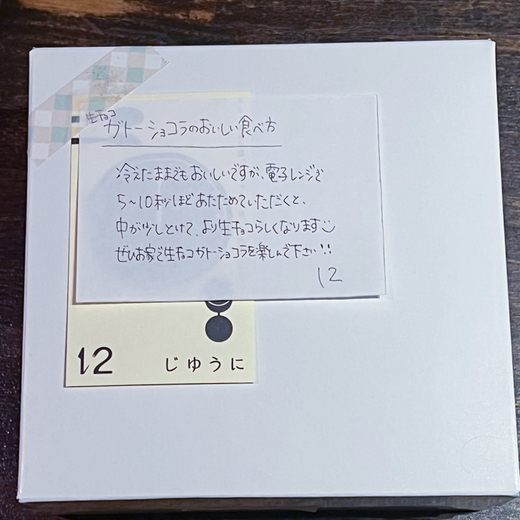 生チョコ
ガトーショコラのおいしい食べ方
冷えたままでもおいしいですが、電子レンジで
5〜10秒ほどあたためていただくと、
中が少しとけて、より生チョコらしくなります
ぜひお家で生チョコガトーショコラを楽しんで下さい!!
12
12 じゆうに